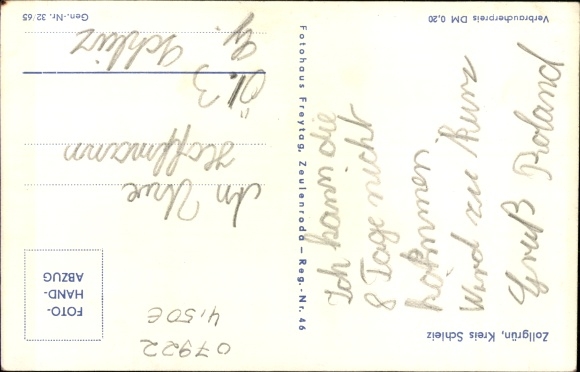 Zollgrün, Kreis Schleiz
Ich kann die
8 Tage nicht
kommen
Wird zu kurz
Gruß Roland
Fotohaus Freytag, Zeulenroda – Reg.-Nr. 46
07922
4,50€
FOTO-
HAND-
ABZUG
An Uwe
Hoffmann
Öl. 3
Schleiz
Gen.-Nr. 32/65
Verbraucherpreis DM 0,20